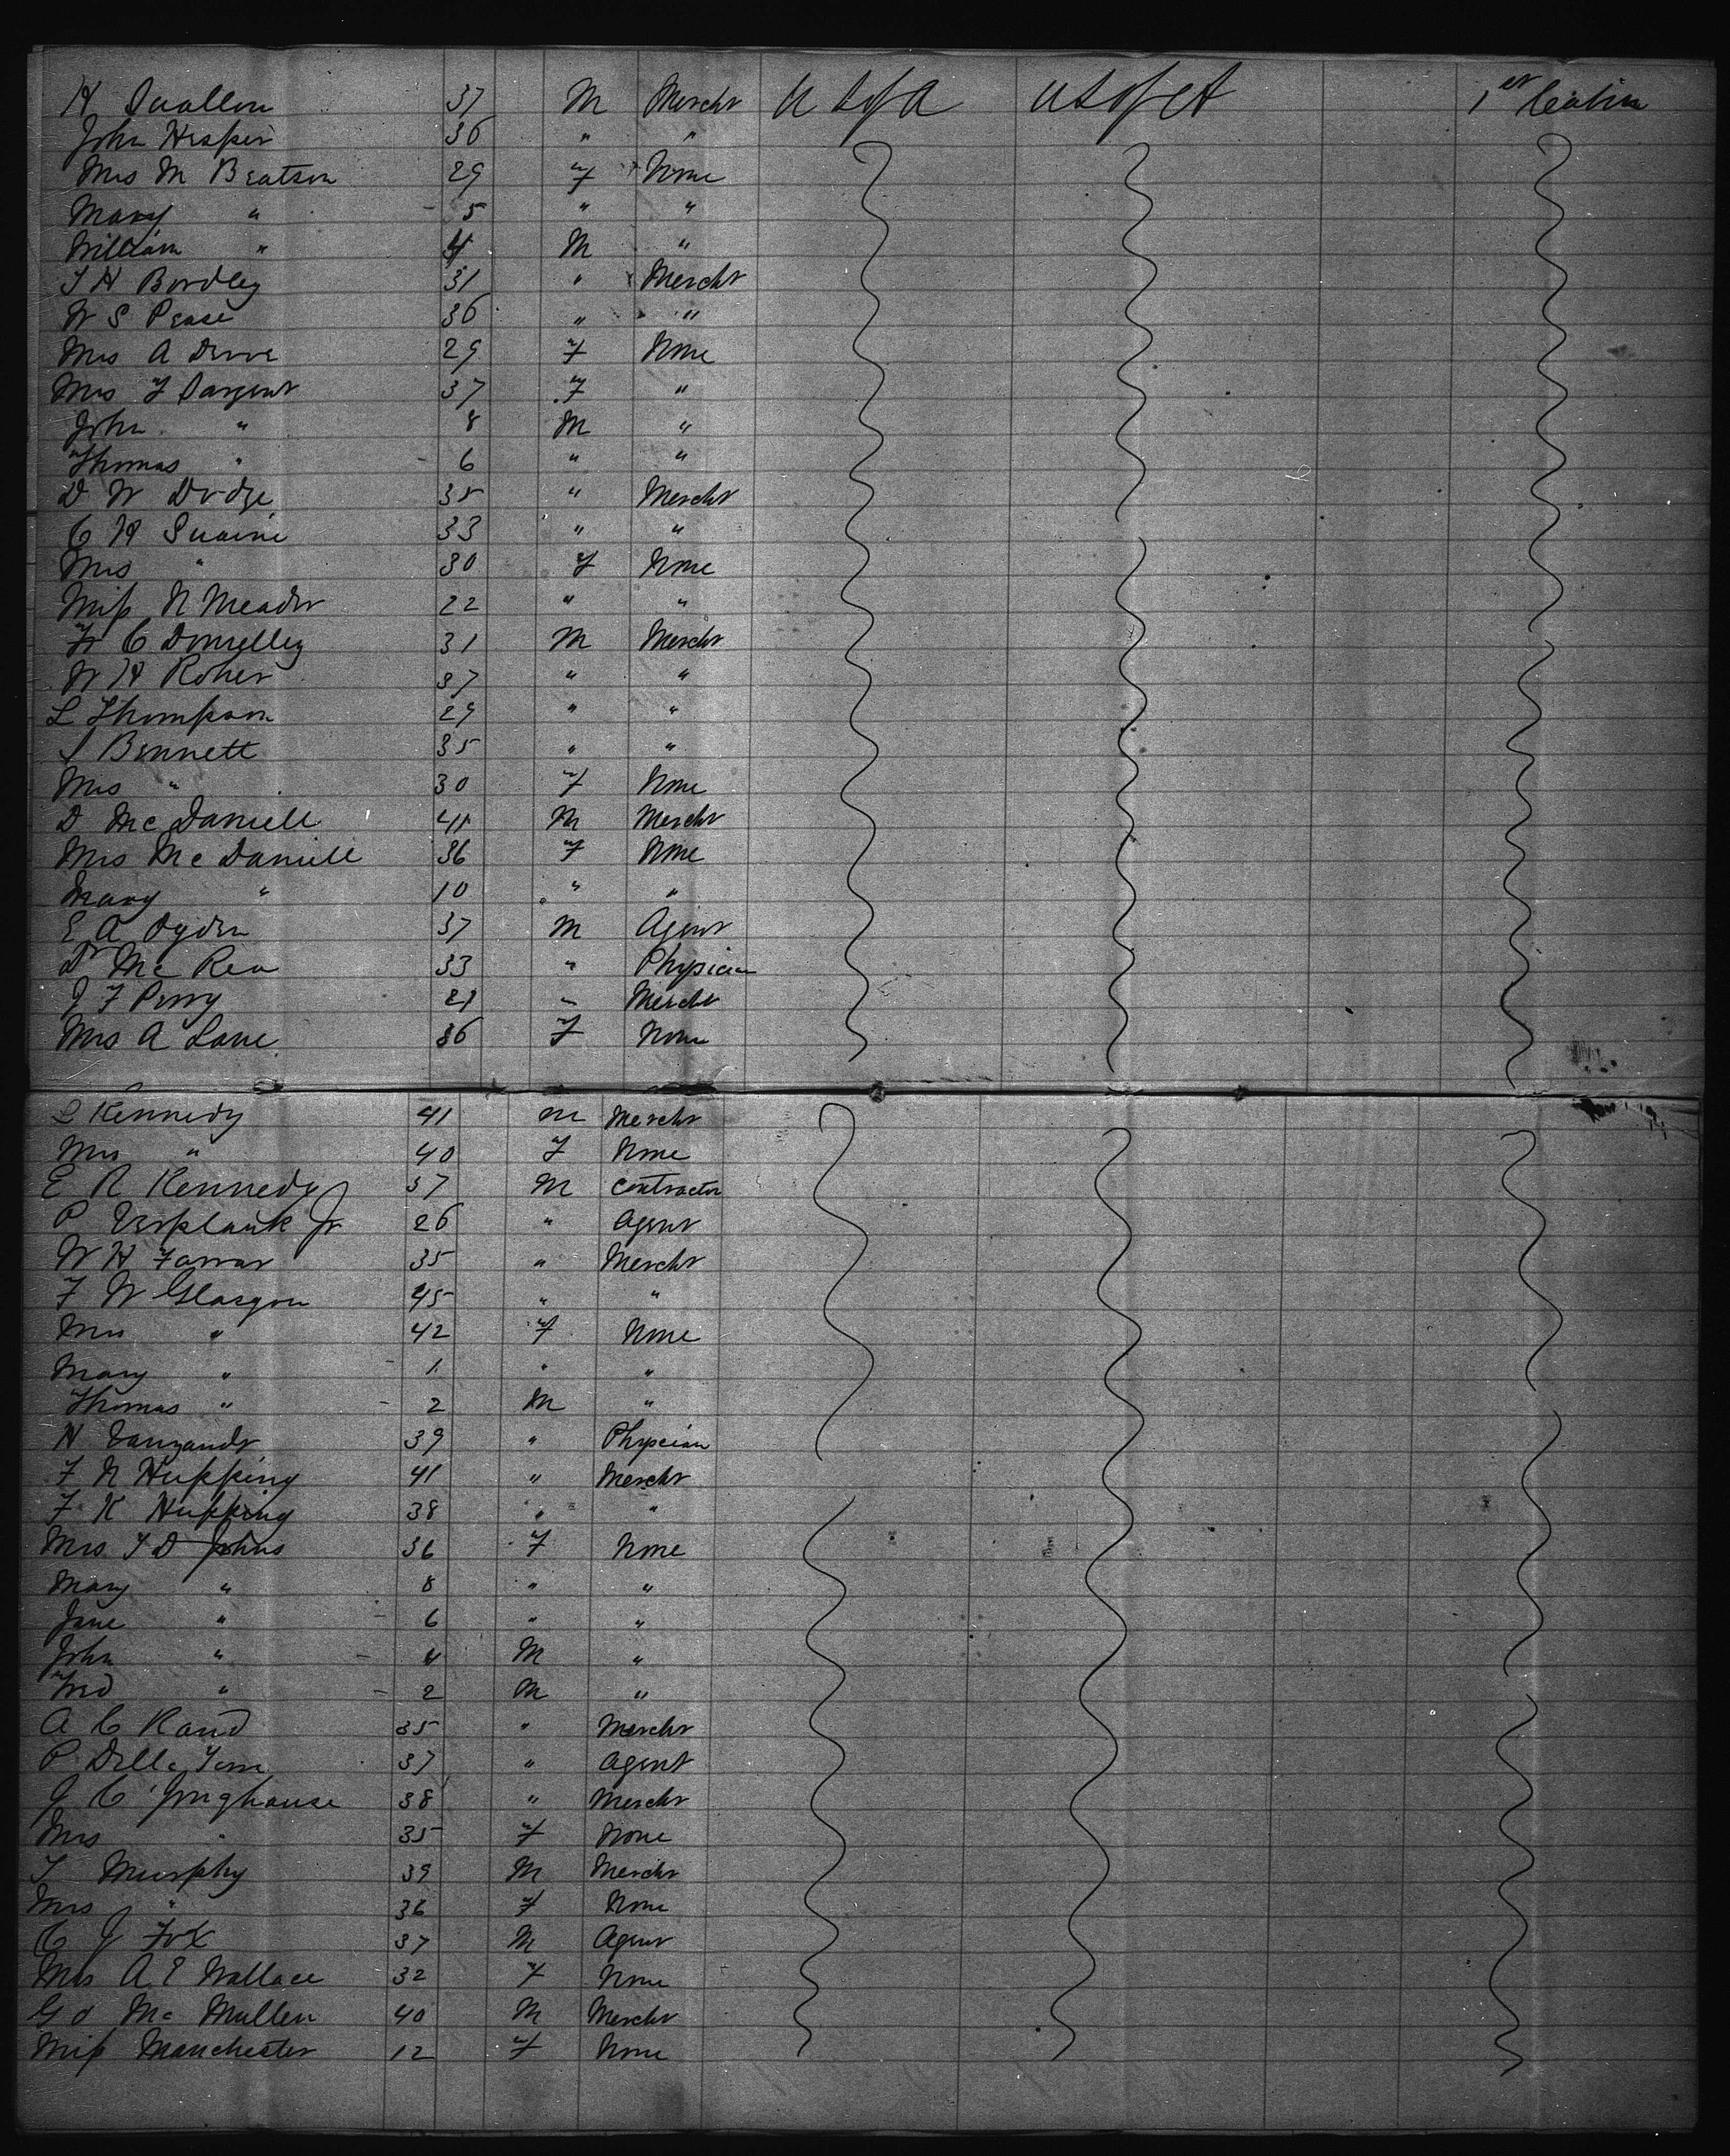 H Swallow 37 M Mercht U S of A U S of A 1st Cabin
John Hesper 36 " "
Mrs M Beatson 29 F None
Mary " 5 " "
William " 4 M "
T H Bordley 31 " Mercht
W S Pease 36 " "
Mrs A 29 F None
Mrs F Sargent 37 F "
John " 8 M "
Thomas " 6 " "
D W Dodge 35 " Mercht
C H Swaine 33 " "
Mrs " 30 F None
Miss N Meader 22 " "
C Donnelley 31 M Mercht
W H Roher 37 " "
L Thompson 29 " "
S Bennett 35 " "
Mrs " 30 F None
D McDaniell 41 M Mercht
Mrs McDaniell 36 F None
Mary " 10 " "
E A Ogden 37 M Agent
Dr McRea 33 " Physician
J F Perry 21 " Mercht
Mrs A Lane 36 F None
L Kennedy 41 M Mercht
Mrs " 40 F None
E R Kennedy 37 M Contractor
P Verplank Jr 26 " Agent
W H Farrar 35 " Mercht
F W Glasgow 45 " "
Mrs " 42 F None
Mary " 1 " "
Thomas " 2 M "
H Vanzandt 39 " Physcian
F N Hupping 41 " Mercht
F K Hupping 38 " "
Mrs T D Johns 36 F None
Mary " 8 " "
Jane " 6 " "
John " 4 M "
Fred " 2 M "
A C Rand 35 " Mercht
P Delle 37 " Agent
J C Yonghouse 38 " Mercht
Mrs " 35 F None
T Murphy 39 M Mercht
Mrs " 36 F None
C J Fox 37 M Agent
Mrs A E Wallace 32 F None
G O McMullen 40 M Mercht
Miss Manchester 12 F None